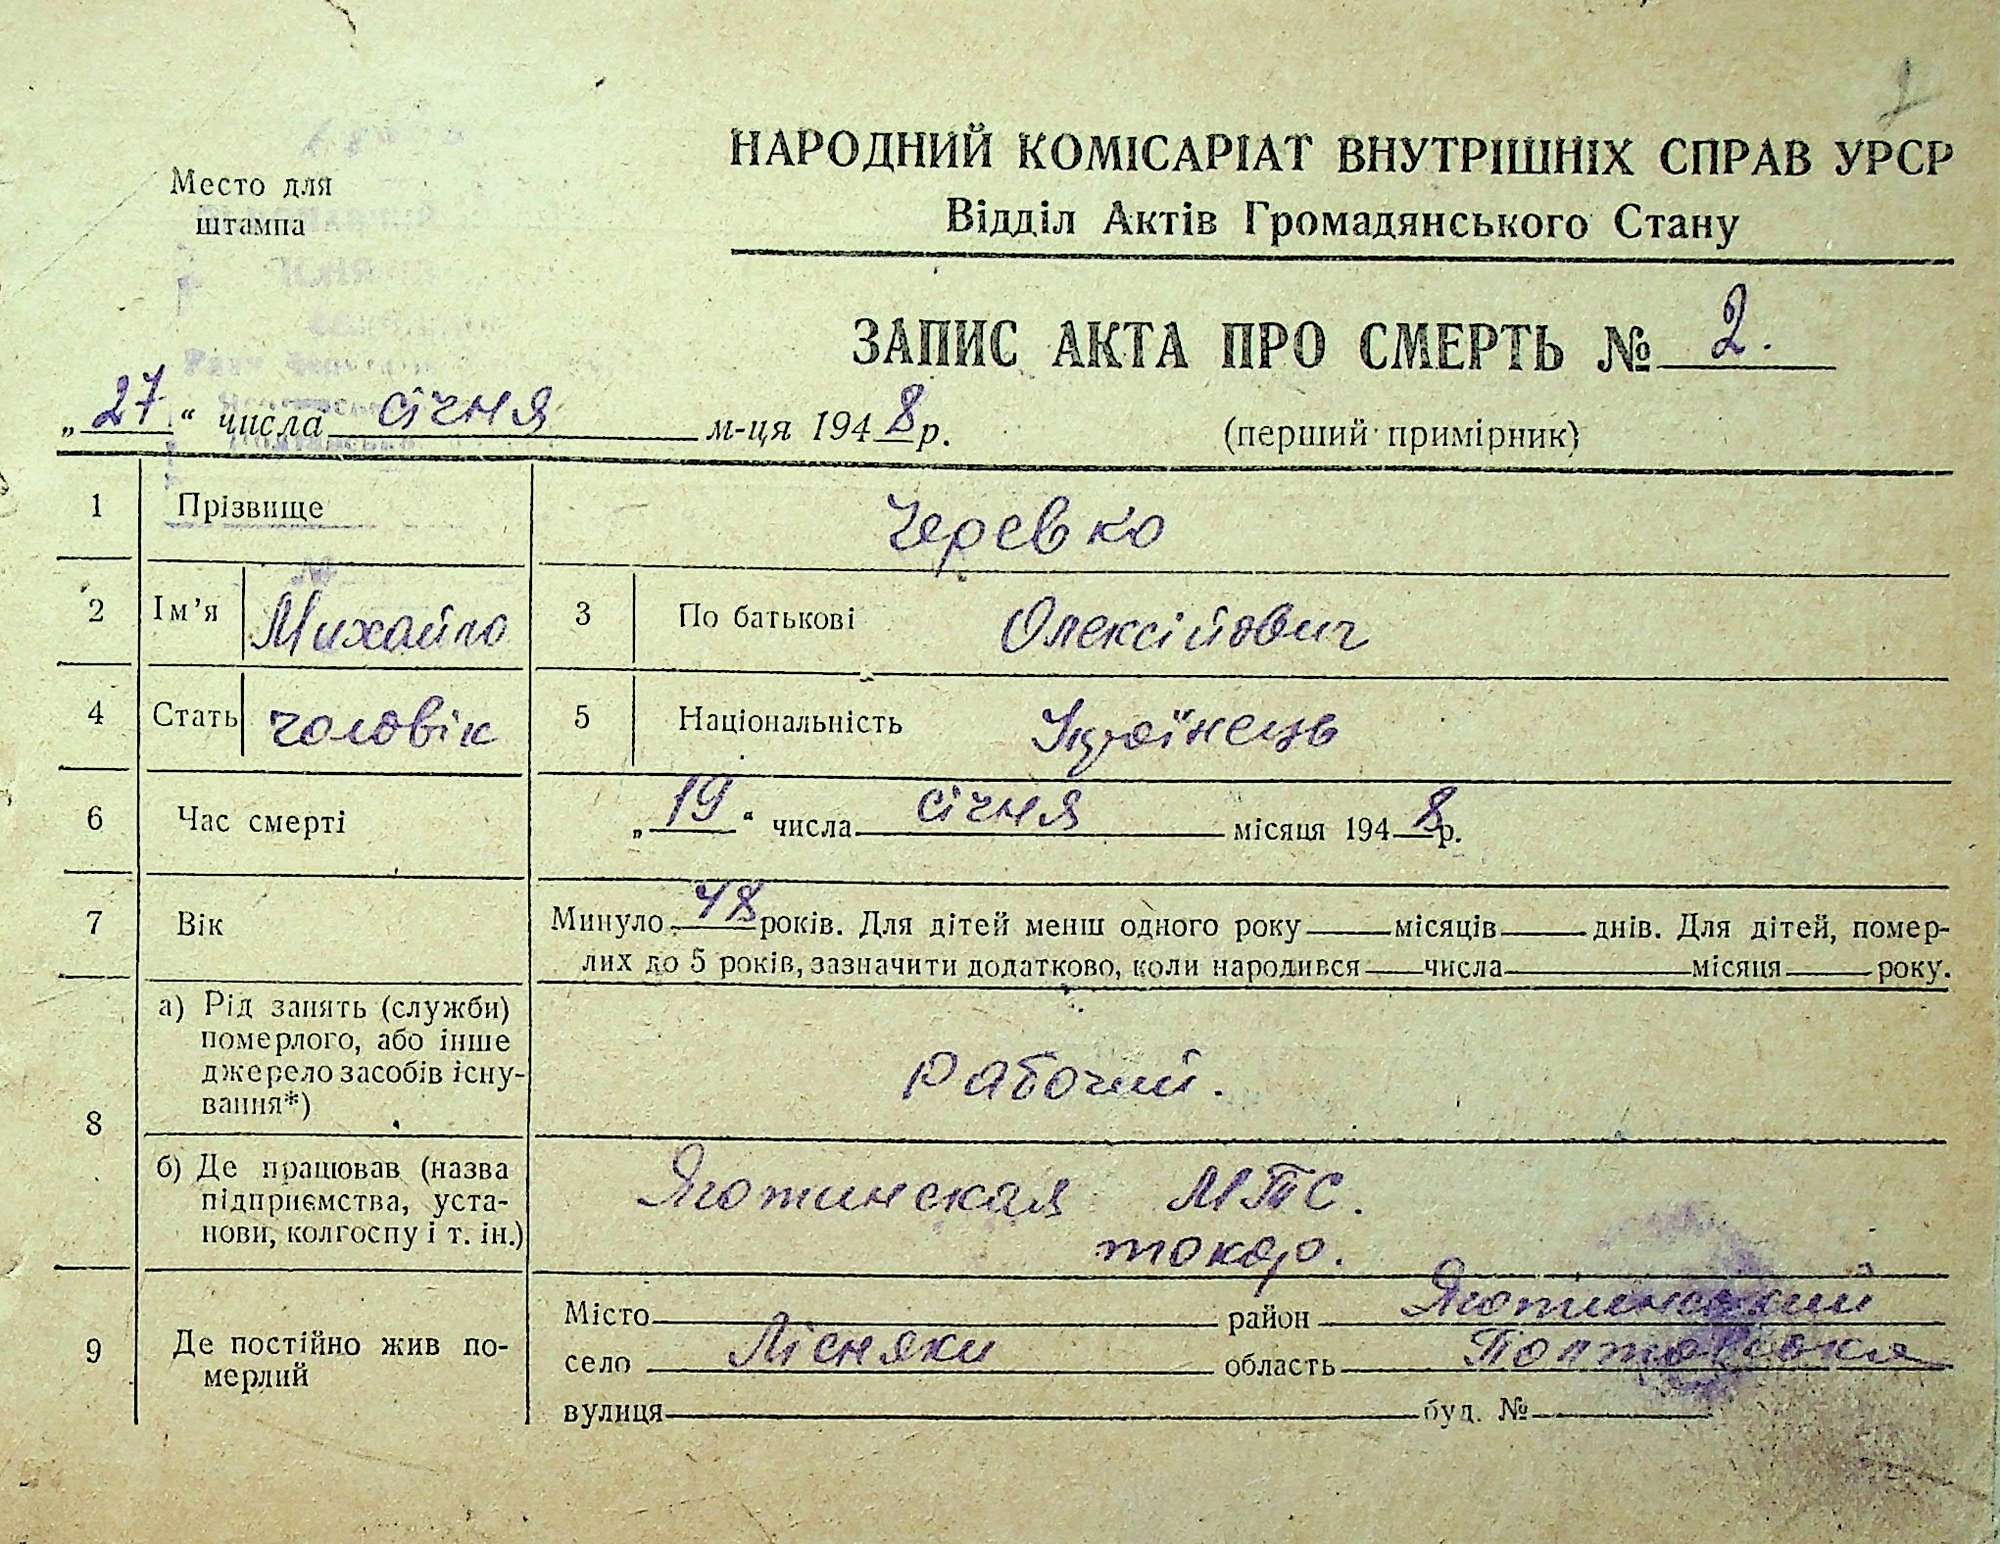 НАРОДНИЙ КОМІСАРІАТ ВНУТРІШНІХ СПРАВ УРСР
Место для
штампа
Відділ Актів Громадянського Стану
ЗАПИС АКТА ПРО СМЕРТЬ № 2.
„27“ числа січня м-ця 1948 р.
(перший примірник)
1 Прізвище Черевко
2 Ім'я Михайло 3 По батькові Олексійович
4 Стать чоловік 5 Національність Українець
6 Час смерті „19“ числа січня місяця 1948 р.
7 Вік Минуло 48 років. Для дітей менш одного року місяців днів. Для дітей, помер-
лих до 5 років, зазначити додатково, коли народився числа місяця року.
8 а) Рід занять (служби)
померлого, або інше
джерело засобів існу-
вання*)
Рабочий.
б) Де працював (назва
підприємства, уста-
нови, колгоспу і т. ін.)
Яготинская МТС.
токар.
9 Де постійно жив по-
мерлий
Місто район Яготинський
село Лісняки область Полтавская
вулиця буд. №